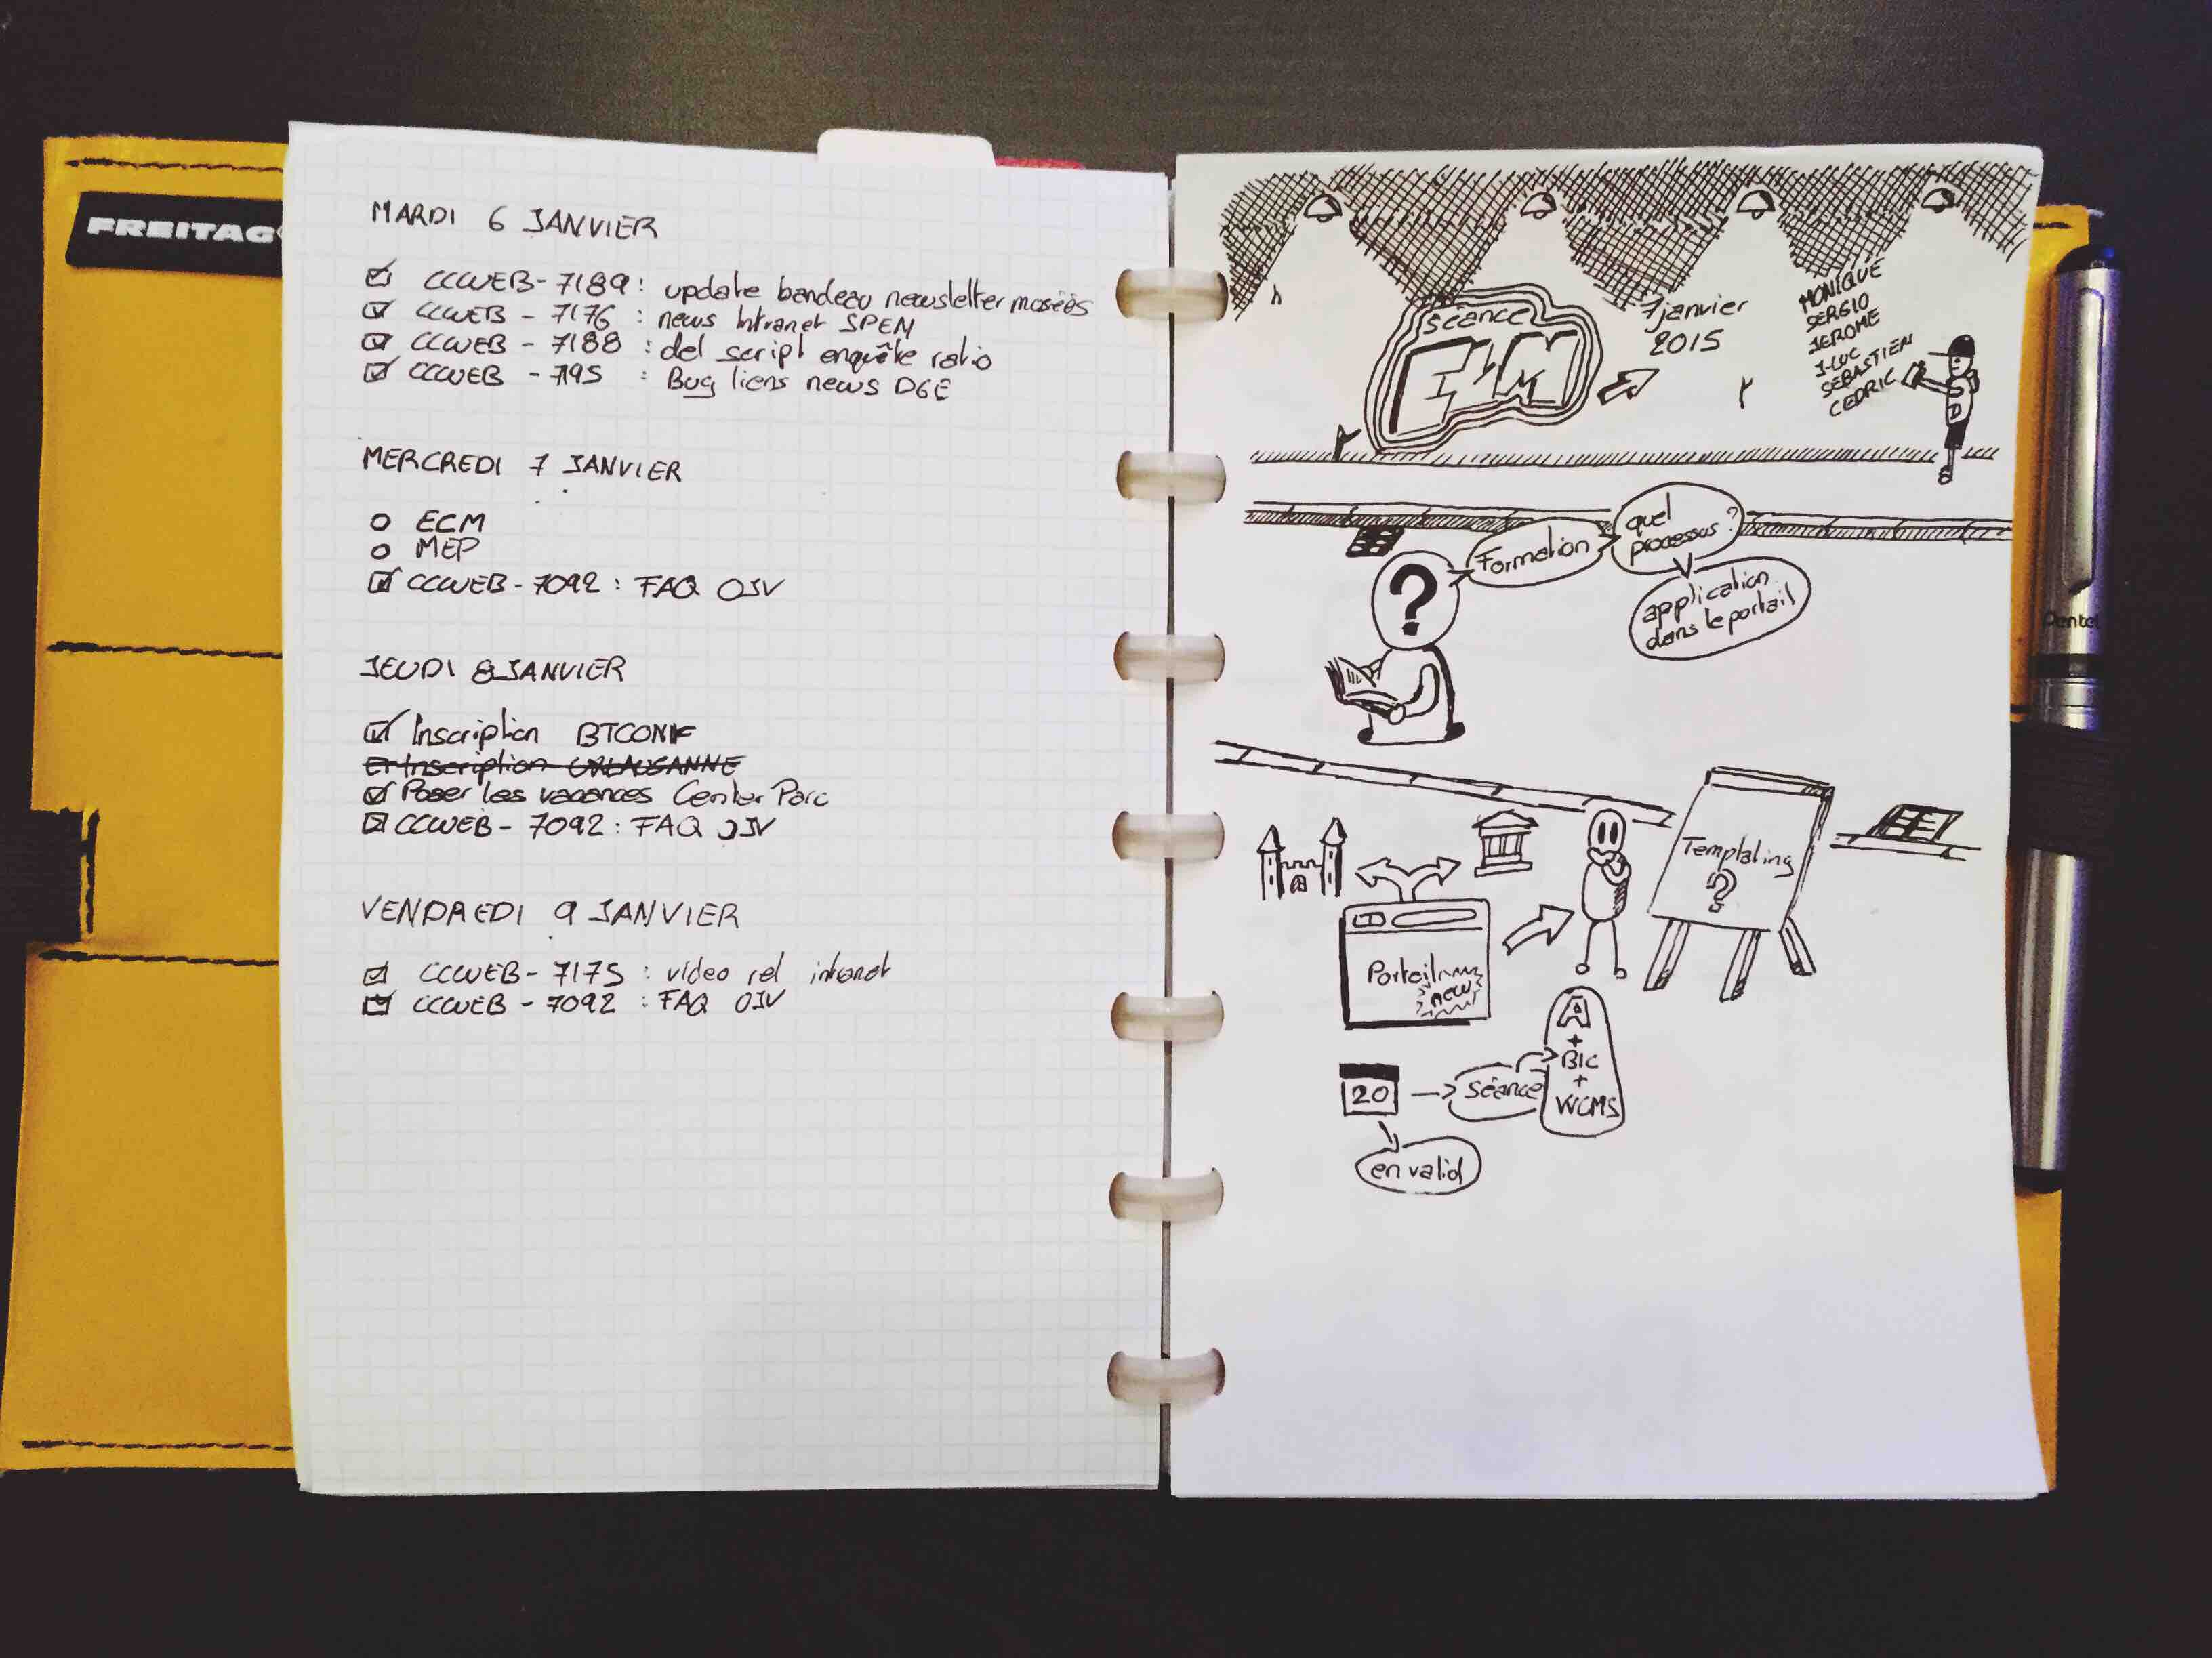 FREITAG
MARDI 6 JANVIER
CCWEB-7189 : update bandeau newsletter musées
CCWEB - 7176 : news Intranet SPEN
CCWEB - 7188 : del script enquête ratio
CCWEB - 7195 : Bug liens news DGE
MERCREDI 7 JANVIER
ECM
MEP
CCWEB - 7092 : FAQ OJV
JEUDI 8 JANVIER
Inscription BTCONF
Inscription UXLAUSANNE
Poser les vacances Center Parc
CCWEB - 7092 : FAQ OJV
VENDREDI 9 JANVIER
CCWEB - 7175 : video rel intranet
CCWEB - 7092 : FAQ OJV
séance
7 janvier
2015
MONIQUE
SERGIO
JEROME
J-LUC
SEBASTIEN
CEDRIC
SD
?
Formation
quel
processus ?
application
dans le portail
Templating
?
Portail
new
20
Séance
A
+
BIC
+
WCMS
en valid
Pentel